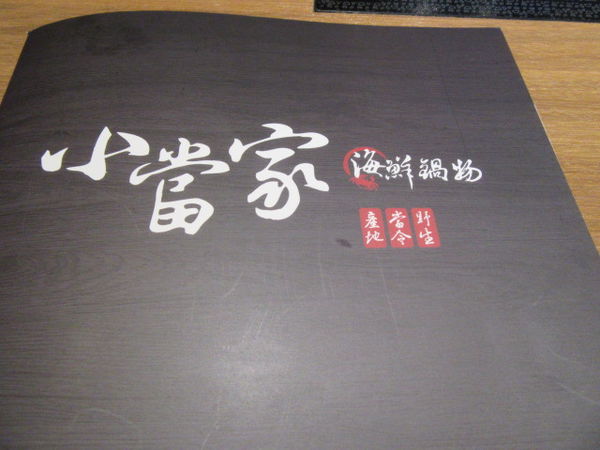 小當家
海鮮鍋物
產地 當令 野生